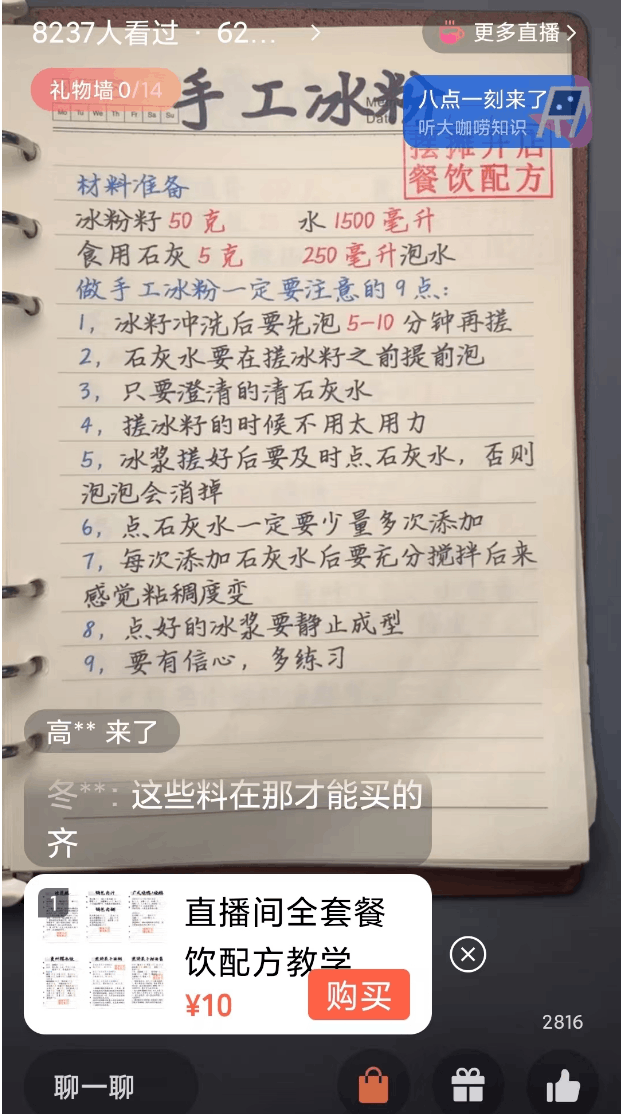 8237人看过 · 62... >
更多直播 >
礼物墙 0/14
手工冰粉
Mo Tu We Th Fr Sa Su
八点一刻来了
听大咖唠知识
摆摊开店
餐饮配方
材料准备
冰粉籽 50 克 水 1500 毫升
食用石灰 5 克 250 毫升泡水
做手工冰粉一定要注意的9点:
1, 冰籽冲洗后要先泡 5-10 分钟再搓
2, 石灰水要在搓冰籽之前提前泡
3, 只要澄清的清石灰水
4, 搓冰籽的时候不用太用力
5, 冰浆搓好后要及时点石灰水, 否则
泡泡会消掉
6, 点石灰水一定要少量多次添加
7, 每次添加石灰水后要充分搅拌后来
感觉粘稠度变
8, 点好的冰浆要静止成型
9, 要有信心, 多练习
高** 来了
冬**: 这些料在那才能买的
齐
1
直播间全套餐
饮配方教学
¥10
购买
2816
聊一聊